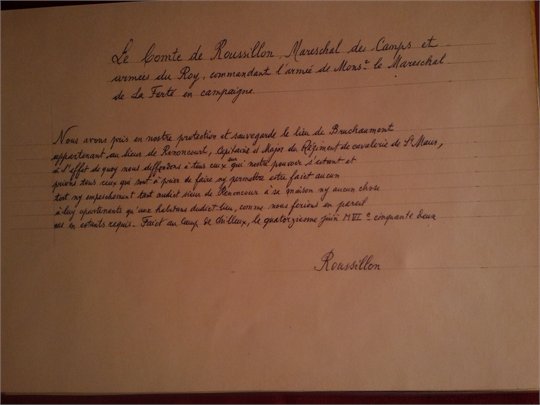 Le Comte de Roussillon, Mareschal des Camps et
armées du Roy, commandant l'armée de Mons.r le Mareschal
de La Ferté en campagne.
Nous avons pris en nostre protection et sauvegarde le lieu de Bruchaumont
appartenant au sieur de Renoncourt, Capitaine et Major du Régiment de cavalerie de St Maur,
à l'effet de quoy nous deffendons à tous ceux sur qui nostre pouvoir s'estant et
prions tous ceux qui sont à prier de faire ny permettre estre faict aucun
tort ny empeschement tant audict sieur de Renoncour à sa maison ny aucun chose
à luy apartenente qu'aux habitans dudict lieu, comme nous ferions en pareil
cas en estants requis. Faict au Camp de, le quatorziesme juin M VI c cinquante deux
Roussillon